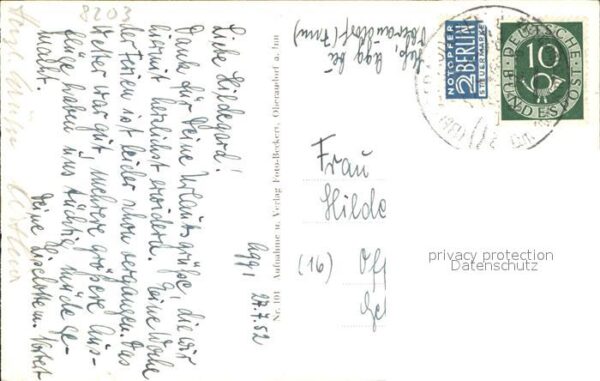 8203
Agg, 27.7.52
Liebe Hildegard!
Danke für Deine Urlaubsgrüße, die wir
hiermit herzlichst erwidern. Eine Woche
der Ferien ist leider schon vergangen. Das
Wetter war gut, mehrere größere Aus-
flüge haben uns tüchtig müde ge-
macht.
Deine Lieselotte.
Herzl. Grüße
Nr. 101 Aufnahme u. Verlag Foto-Beckert, Oberaudorf a. Inn
Agg bei
Oberaudorf (Inn)
NOTOPFER
2 BERLIN
STEUERMARKE
DEUTSCHE
10
BUNDESPOST
Frau
Hilde
(16) Off
Ge
privacy protection
Datenschutz